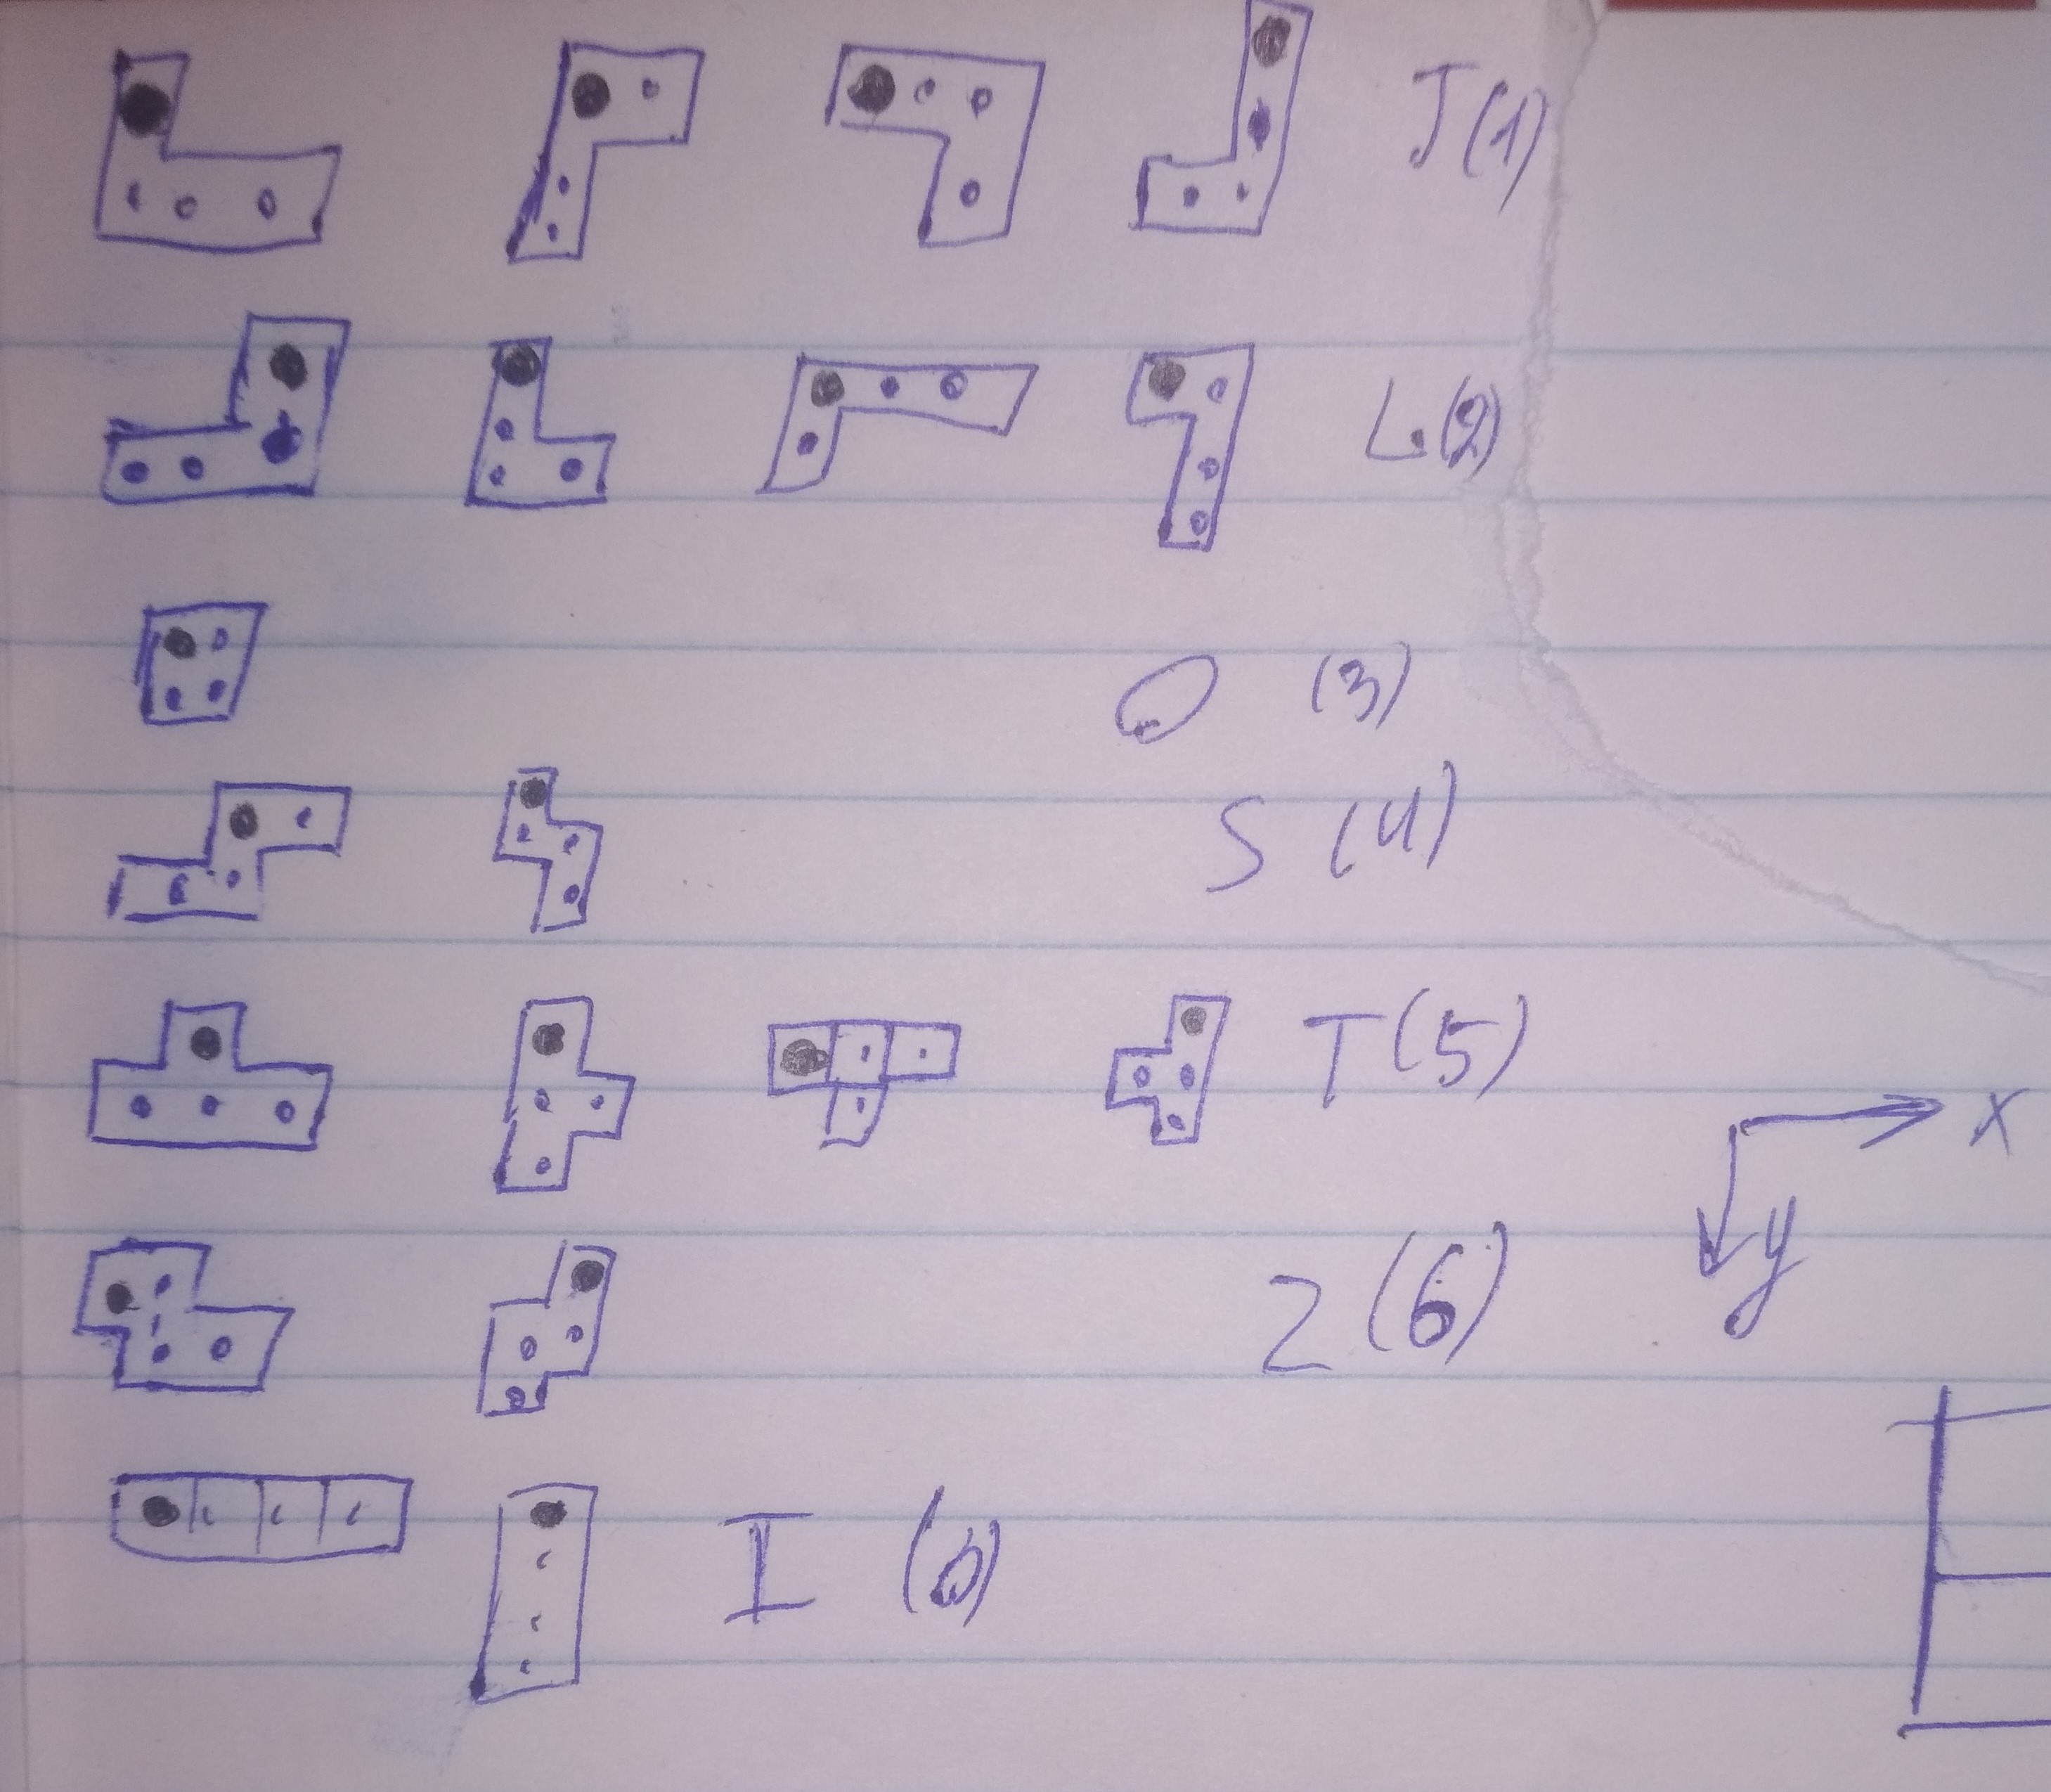 J (1)
L (2)
O (3)
S (4)
T (5)
x
y
Z (6)
I (0)